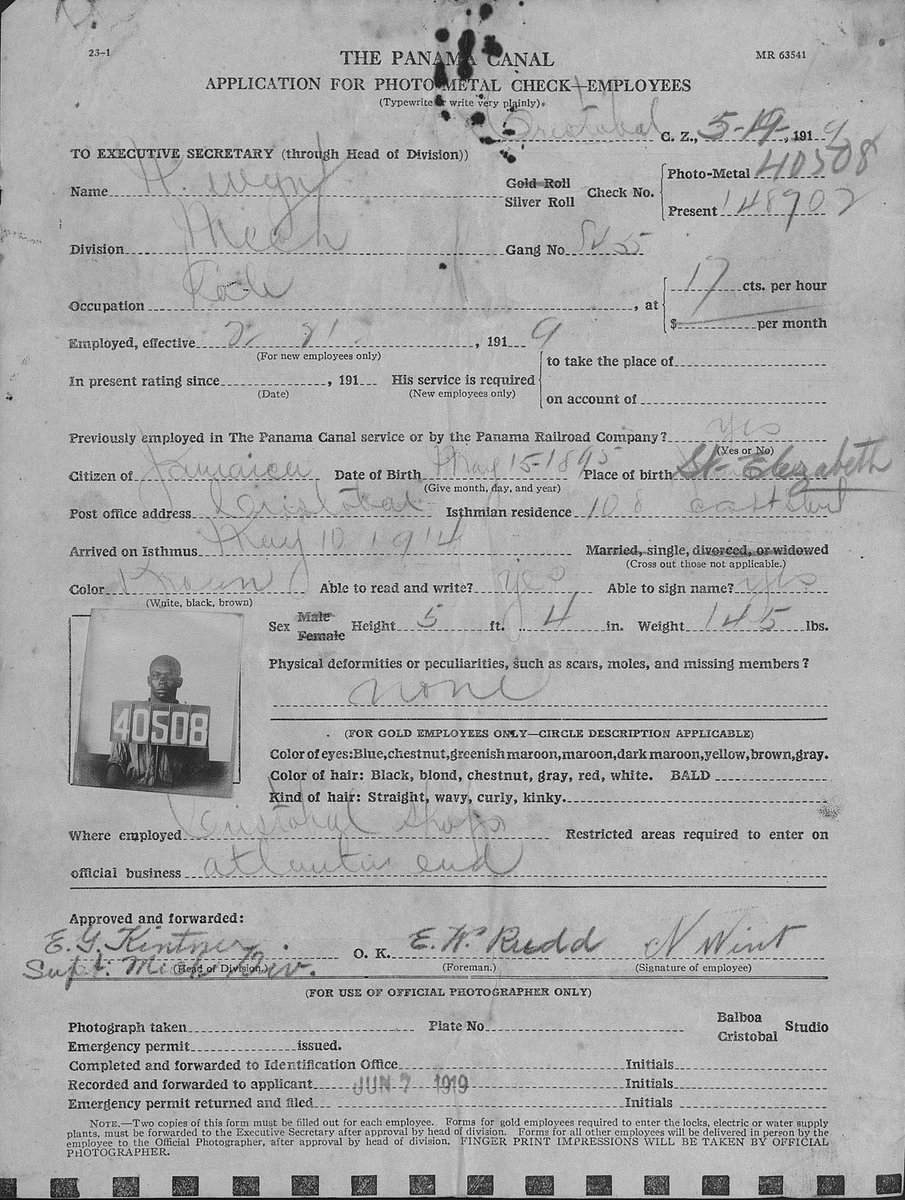 23-1
MR 63541
THE PANAMA CANAL
APPLICATION FOR PHOTO-METAL CHECK—EMPLOYEES
(Typewrite or write very plainly)
Cristobal C. Z., 5-19-, 1919
TO EXECUTIVE SECRETARY (through Head of Division))
Name Gold Roll Silver Roll Check No. Photo-Metal 40508 Present 148902
Division Mech Gang No
Occupation , at 17 cts. per hour
$ per month
Employed, effective , 1919
(For new employees only)
to take the place of
In present rating since , 191 His service is required
(Date) (New employees only)
on account of
Previously employed in The Panama Canal service or by the Panama Railroad Company? yes
(Yes or No)
Citizen of Jamaica Date of Birth May 15-1895 Place of birth St. Elizabeth
(Give month, day, and year)
Post office address Cristobal Isthmian residence 108
Arrived on Isthmus May 10 1914 Married, single, divorced, or widowed
(Cross out those not applicable.)
Color Brown Able to read and write? yes Able to sign name? yes
(White, black, brown)
Sex Male Female Height 5 ft. 4 in. Weight 145 lbs.
Physical deformities or peculiarities, such as scars, moles, and missing members?
none
40508
(FOR GOLD EMPLOYEES ONLY—CIRCLE DESCRIPTION APPLICABLE)
Color of eyes: Blue, chestnut, greenish maroon, maroon, dark maroon, yellow, brown, gray.
Color of hair: Black, blond, chestnut, gray, red, white. BALD
Kind of hair: Straight, wavy, curly, kinky.
Where employed Cristobal Shops Restricted areas required to enter on
official business atlantic end
Approved and forwarded:
E. G. Kintner O. K. E. W. Rudd N Wint
Supt. Mech. Div.
(Head of Division.) (Foreman.) (Signature of employee)
(FOR USE OF OFFICIAL PHOTOGRAPHER ONLY)
Photograph taken Plate No Balboa Cristobal Studio
Emergency permit issued.
Completed and forwarded to Identification Office Initials
Recorded and forwarded to applicant JUN 7 1919 Initials
Emergency permit returned and filed Initials
NOTE.—Two copies of this form must be filled out for each employee. Forms for gold employees required to enter the locks, electric or water supply
plants, must be forwarded to the Executive Secretary after approval by head of division. Forms for all other employees will be delivered in person by the
employee to the Official Photographer, after approval by head of division. FINGER PRINT IMPRESSIONS WILL BE TAKEN BY OFFICIAL
PHOTOGRAPHER.